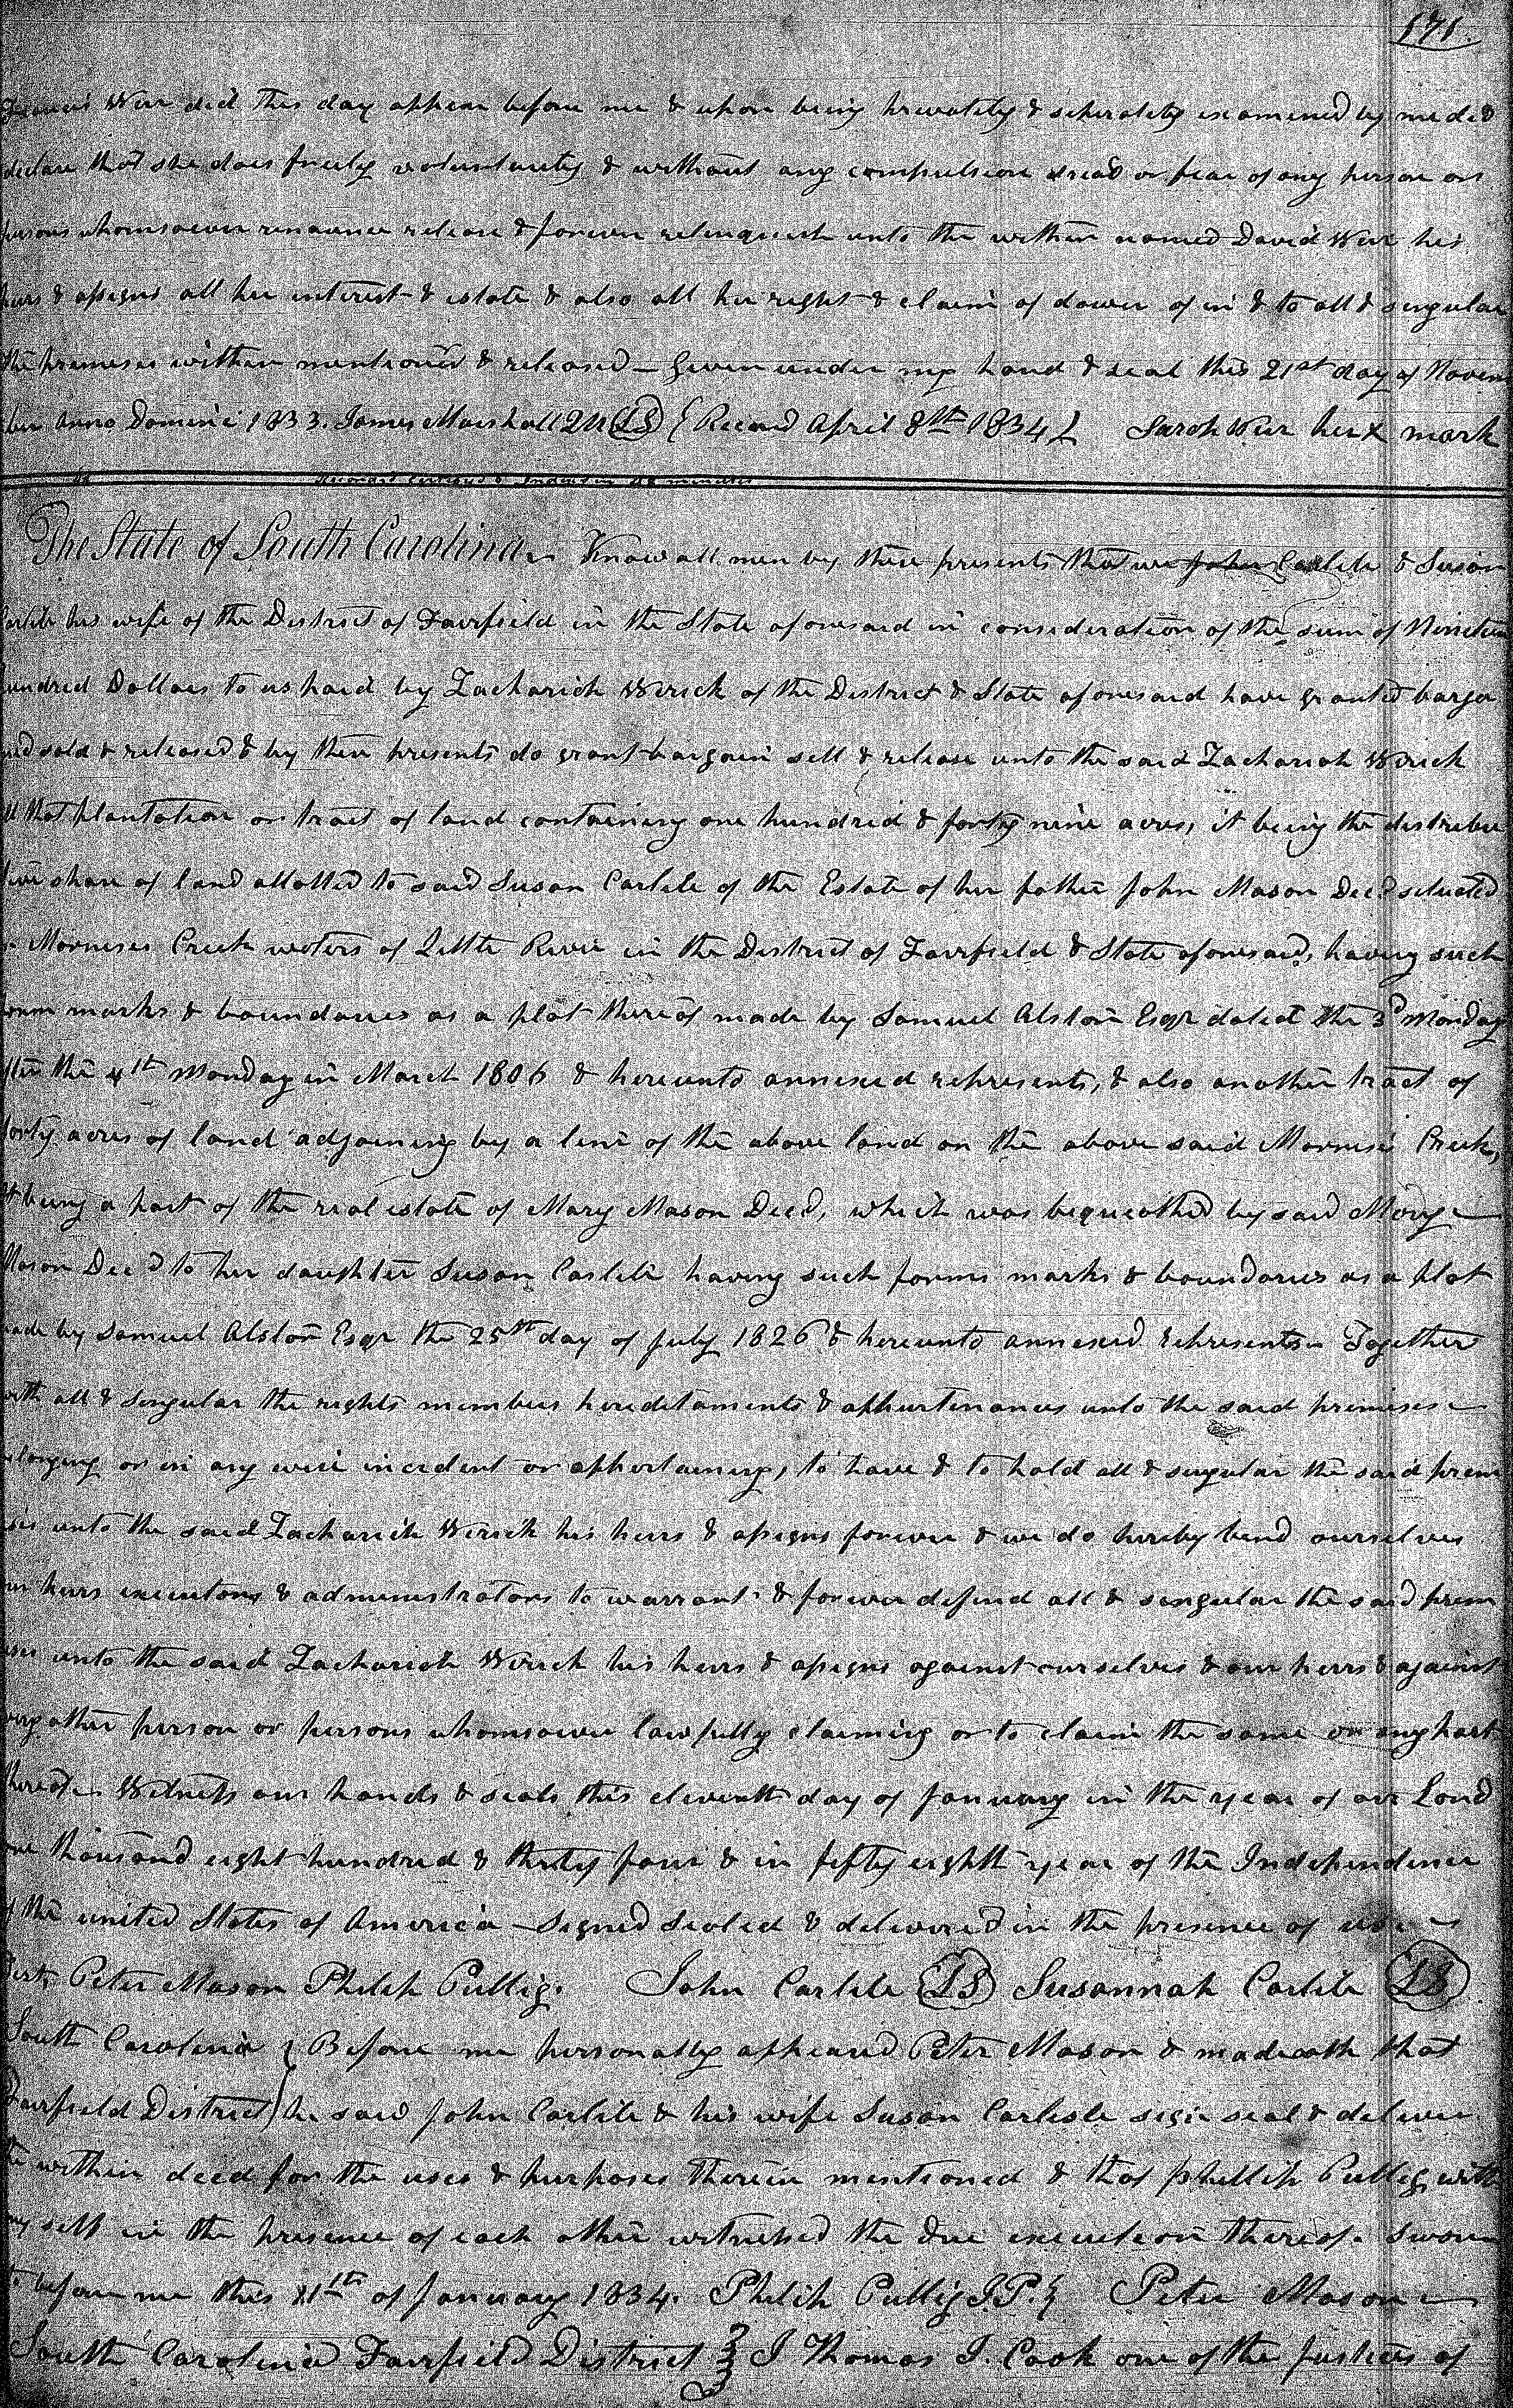 171.
Wier did this day appear before me & upon being privately & seperately examined by me did
declare that she does freely voluntarily & without any compulsion dread or fear of any person or
persons whomsoever renounce release & forever relinquish unto the within named David Wier his
heirs & assigns all her interest & estate & also all her right & claim of dower of in & to all & singular
the premises within mentioned & released – Given under my hand & seal this 21st day of Novem
ber Anno Domini 1833. James Marshall QU (LS) { Record April 8th 1834 } Sarah Wier her X mark
The State of South Carolina Know all men by these presents that we John Carlile & Susan
Carlile his wife of the District of Fairfield in the State aforesaid in consideration of the sum of Nineteen
hundred Dollars to us paid by Zachariah Wirick of the District & State aforesaid have granted bargai
ned sold & released & by these presents do grant bargain sell & release unto the said Zachariah Wirick
all that plantation or tract of land containing one hundred & forty nine acres, it being the distribu
tive share of land allotted to said Susan Carlile of the Estate of her father John Mason Decd situated
Creek waters of Little River in the District of Fairfield & State aforesaid, having such
form marks & boundaries as a plat thereof made by Samuel Alston Esqr dated the 3d Monday
after the 4th Monday in March 1806 & hereunto annexed represents, & also another tract of
forty acres of land adjoining by a line of the above land on the above said Creek,
it being a part of the real estate of Mary Mason Decd, which was bequeathed by said Mary
Mason Decd to her daughter Susan Carlile having such forms marks & boundaries as a plat
made by Samuel Alston Esqr the 25th day of July 1826 & hereunto annexed represents – Together
with all & singular the rights members hereditaments & appurtenances unto the said premises
belonging or in any wise incident or appertaining, to have & to hold all & singular the said prem
ises unto the said Zachariah Wirick his heirs & assigns forever & we do hereby bind ourselves
our heirs executors & administrators to warrant & forever defend all & singular the said prem
ises unto the said Zachariah Wirick his heirs & assigns against ourselves & our heirs & against
every other person or persons whomsoever lawfully claiming or to claim the same or any part
thereof – Witness our hands & seals this eleventh day of January in the year of our Lord
one thousand eight hundred & thirty four & in fifty eighth year of the Independence
of the united States of America – Signed Sealed & delivered in the presence of us
Peter Mason Philip Pullig. John Carlile (LS) Susannah Carlile (LS)
South Carolina { Before me personally appeared Peter Mason & made oath that
Fairfield District } he saw John Carlile & his wife Susan Carlisle sign seal & deliver
the within deed for the uses & purposes therein mentioned & that Phillip Pullig with
my self in the presence of each other witnessed the due execution thereof. Sworn
to before me this 11th of January 1834. Philip Pullig J.P. } Peter Mason
South Carolina Fairfield District } I Thomas J. Cook one of the Justices of